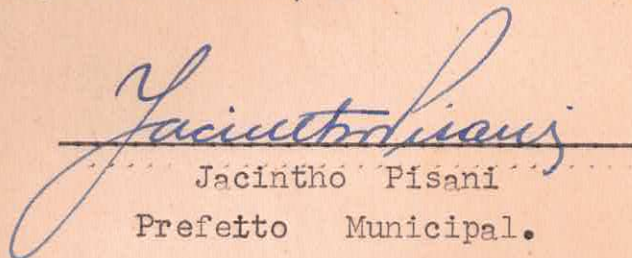 Jacintho Pisani
Jacintho Pisani
Prefetto Municipal.